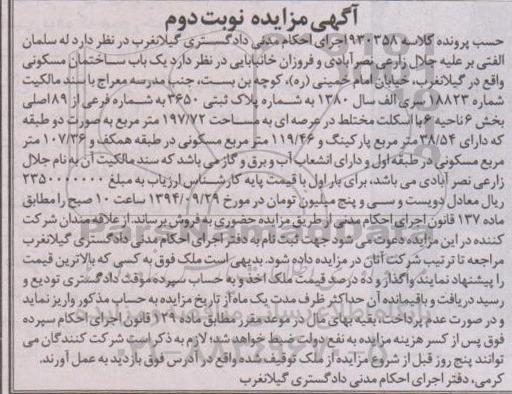 آگهی مزایده نوبت دوم
حسب پرونده کلاسه ۹۳۰۳۵۸ اجرای احکام مدنی دادگستری گیلانغرب در نظر دارد له سلمان
الفتی بر علیه جلال زارعی نصرآبادی و فروزان خانبابایی در نظر دارد یک باب ساختمان مسکونی
واقع در گیلانغرب، خیابان امام خمینی (ره)، کوچه بن بست، جنب مدرسه معراج با سند مالکیت
شماره ۱۸۸۲۳ سری الف سال ۱۳۸۰ به شماره پلاک ثبتی ۳۶۵۰ به شماره فرعی از ۸۹ اصلی
بخش ۶ ناحیه ۶ با اسکلت مختلط در عرصه ای به مساحت ۱۹۷/۷۲ متر مربع به صورت دو طبقه
که دارای ۲۸/۵۴ متر مربع پارکینگ و ۱۱۹/۴۶ متر مربع مسکونی در طبقه همکف و ۱۰۷/۳۶ متر
مربع مسکونی در طبقه اول و دارای انشعاب آب و برق و گاز می باشد که سند مالکیت آن به نام جلال
زارعی نصر آبادی می باشد، برای بار اول با قیمت پایه کارشناس ارزیاب به مبلغ ۲۳۵۰۰۰۰۰۰۰
ریال معادل دویست و سی و پنج میلیون تومان در مورخ ۱۳۹۴/۹/۲۹ ساعت ۱۰ صبح را مطابق
ماده ۱۳۷ قانون اجرای احکام مدنی از طریق مزایده حضوری به فروش برساند. از علاقه مندان شرکت
کننده در این مزایده دعوت می شود جهت ثبت نام به دفتر اجرای احکام مدنی دادگستری گیلانغرب
مراجعه تا ترتیب شرکت آنان در مزایده داده شود. بدیهی است ملک فوق به کسی که بالاترین قیمت
را پیشنهاد نمایند واگذار و ده درصد قیمت ملک اخذ و به حساب سپرده موقت دادگستری تودیع و
رسید دریافت و باقیمانده آن حداکثر ظرف مدت یک ماه از تاریخ مزایده به حساب مذکور واریز نماید
و در صورت عدم پرداخت، بقیه بهای مال در موعد مقرر مطابق ماده ۱۲۹ قانون اجرای احکام سپرده
فوق پس از کسر هزینه مزایده به نفع دولت ضبط خواهد شد؛ لازم به ذکر است شرکت کنندگان می
توانند پنج روز قبل از شروع مزایده از ملک توقیف شده واقع در آدرس فوق بازدید به عمل آورند.
کرمی، دفتر اجرای احکام مدنی دادگستری گیلانغرب